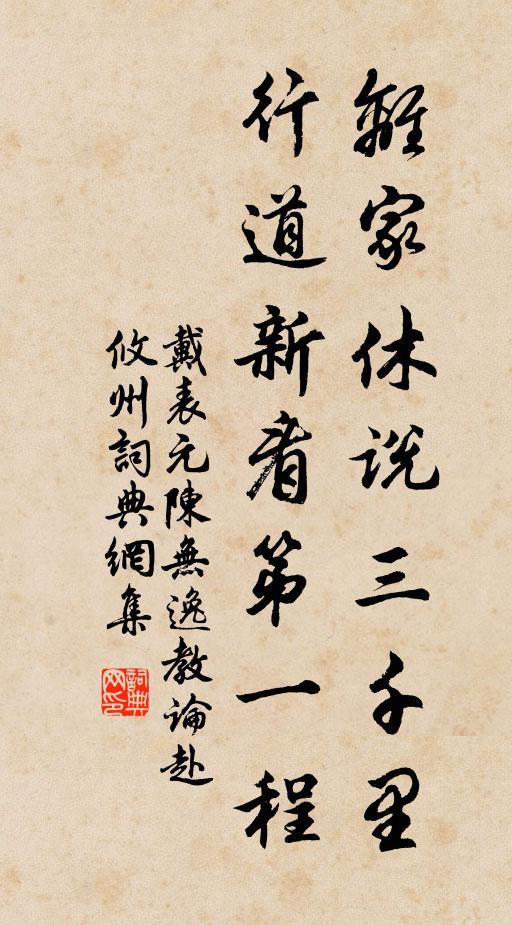 離家休説三千里
行道新看第一程
戴表元陳無逸教論赴
攸州詞典網集
詞典
网印